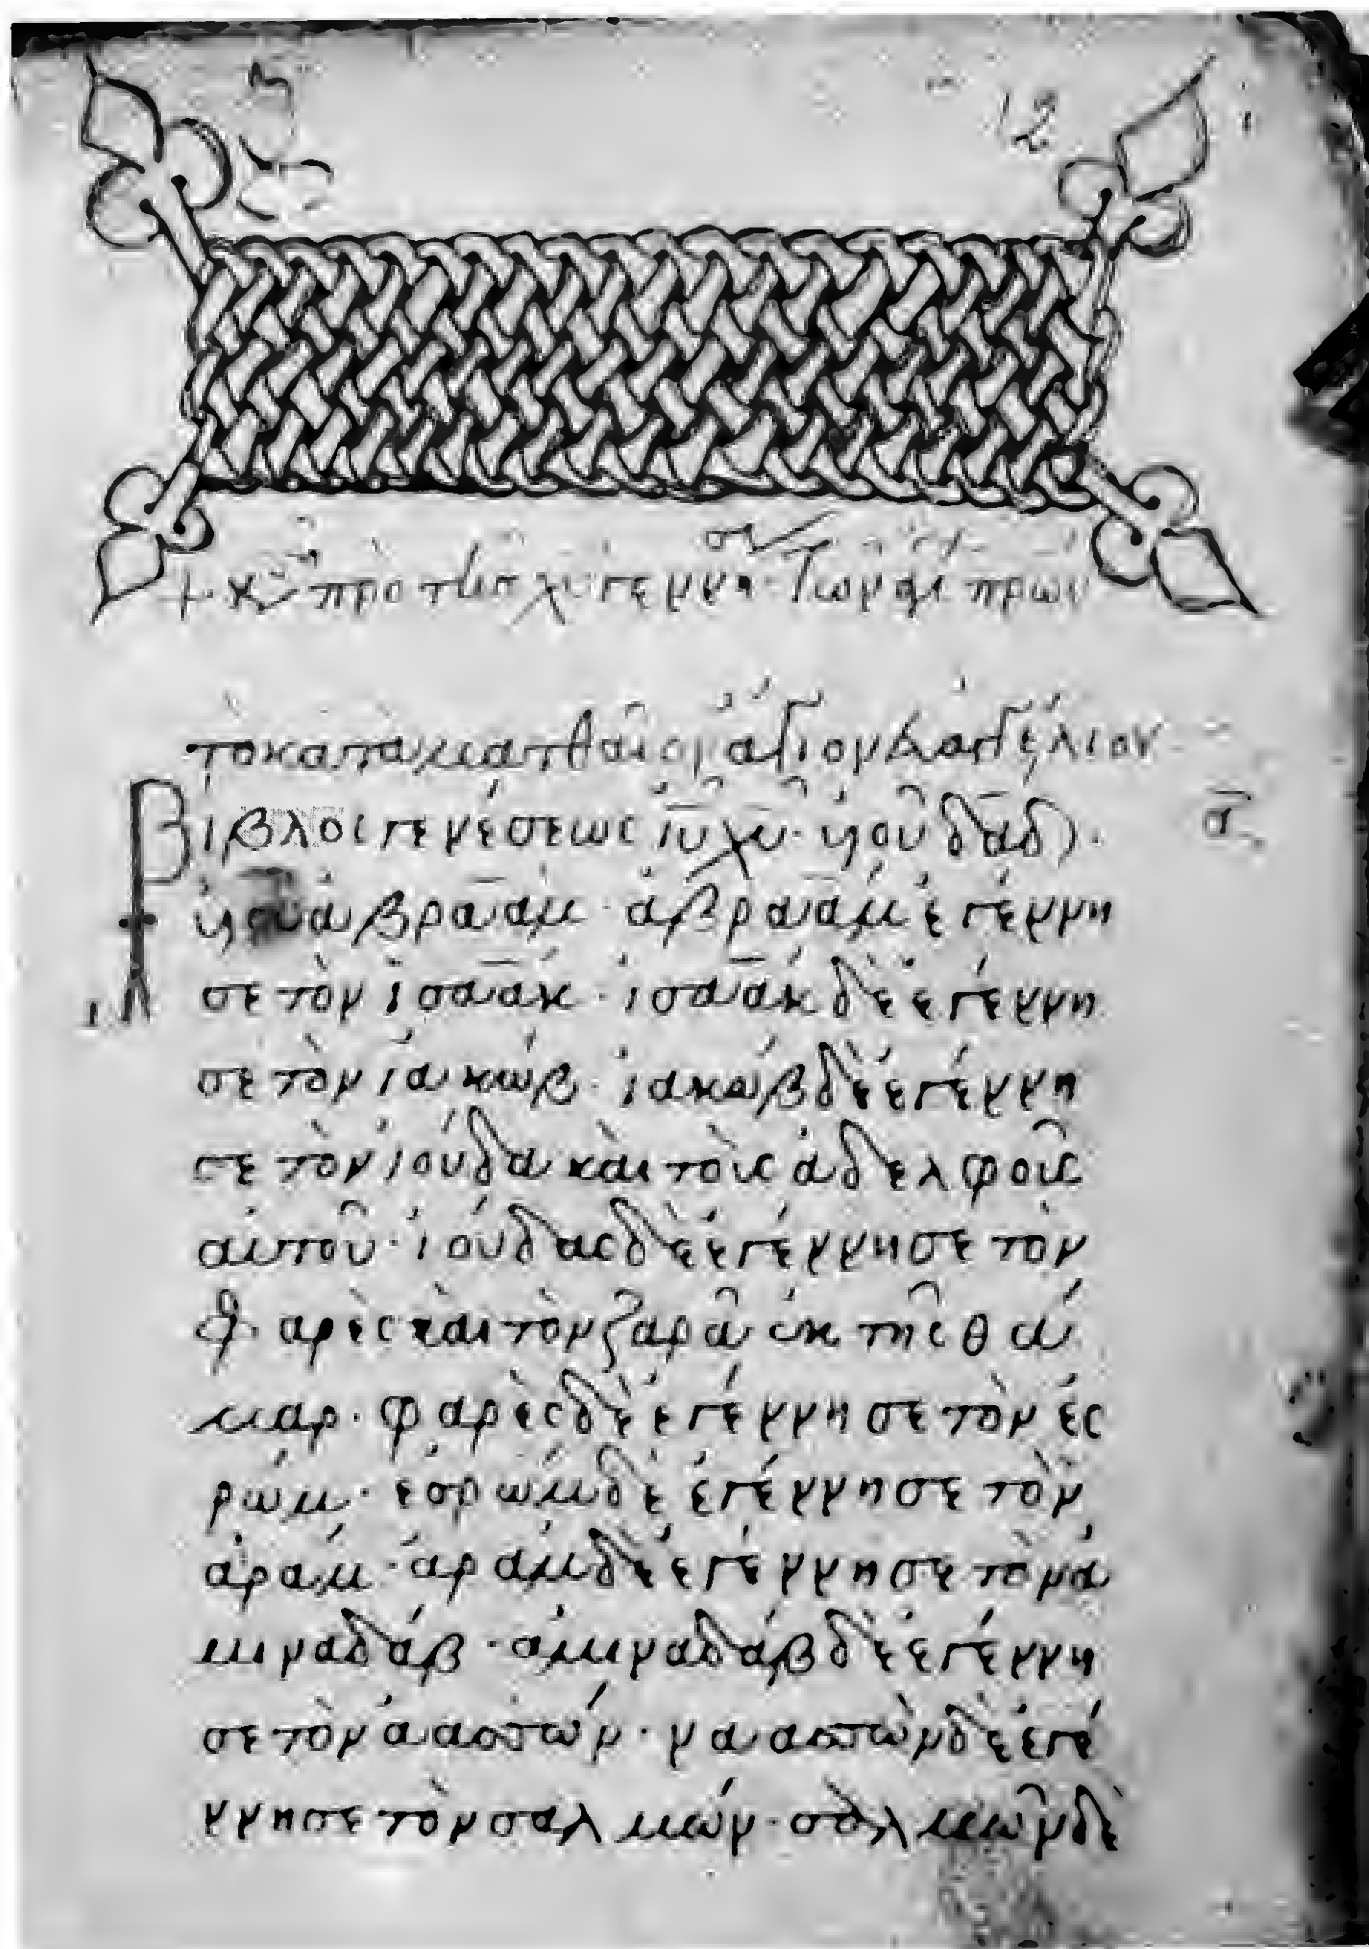 12
τὸ κατὰ ματθαῖον ἅγιον εὐαγγέλιον
Βίβλος γενέσεως ἰ̅υ̅ χ̅υ̅· υἱοῦ δα̅δ̅·
α̅
υἱοῦ ἀβραάμ· ἀβραάμ ἐγέννη
σε τὸν ἰσαάκ· ἰσαάκ δὲ ἐγέννη
σε τὸν ἰακώβ· ἰακώβ δὲ ἐγέννη
σε τὸν ἰούδα καὶ τοὺς ἀδελφοὺς
αὐτοῦ· ἰούδας δὲ ἐγέννησε τὸν
φαρὲς καὶ τὸν ζαρᾶ ἐκ τῆς θά
μαρ· φαρὲς δὲ ἐγέννησε τὸν ἐς
ρώμ· ἐσρώμ δὲ ἐγέννησε τὸν
ἀράμ· ἀράμ δὲ ἐγέννησε τὸν ἀ
μιναδάβ· ἀμιναδάβ δὲ ἐγέννη
σε τὸν ἀασσών· ναασσὼν δὲ ἐγέ
ννησε τὸν σαλμών· σαλμῶν δὲ